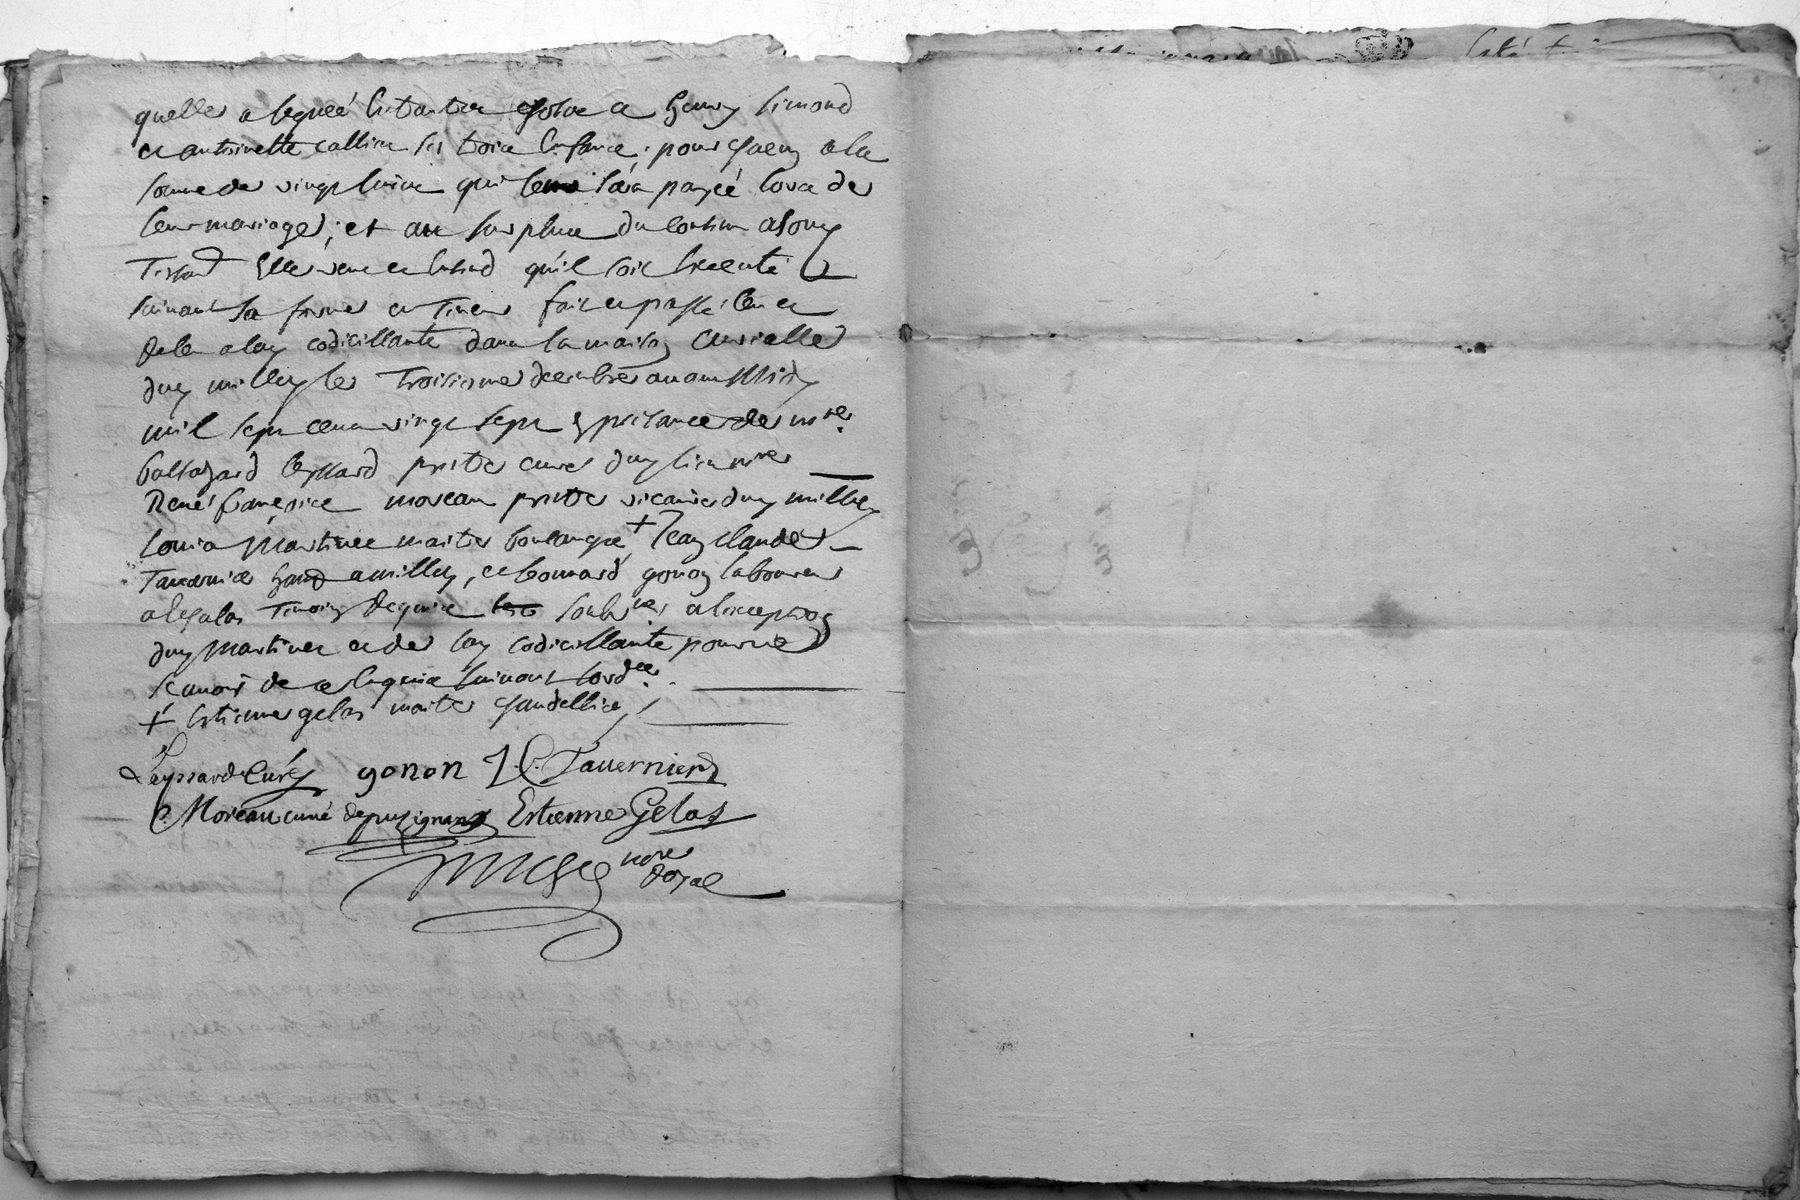 quelle a leguéé
Simond
et antoinette ses trois enfans, pour chacun a la
somme de vingt livres qui leur sera payéé lors de
leur mariage, et au surplus du contenu a son
Testamt Elle veut et entend qu'il soit execute
suivant sa forme et Teneur fait et passé leu et
codicillante dans la maison curialle
dud milley le Troisieme decembre avant Midy
mil sept cent vingt sept En presance de mre
baltazard leyssard prebtre curé dud lieu mre
René françois moreau prebtre vicaire dud milley
Louis Martinet maitre boulanger + Jean Claude
Tavernier a milley, et leonnard gonon laboureur
Temoins Requis soubnés a lexception
dud Martinet et de lad codicillante pour ne
scavoir de ce Enquis suivant lordce
+ Estienne gelas maitre chandellier
Leyssard Curé gonon J.C. Tavernier
Moreau curé depusignan Estienne Gelas
nore Royal